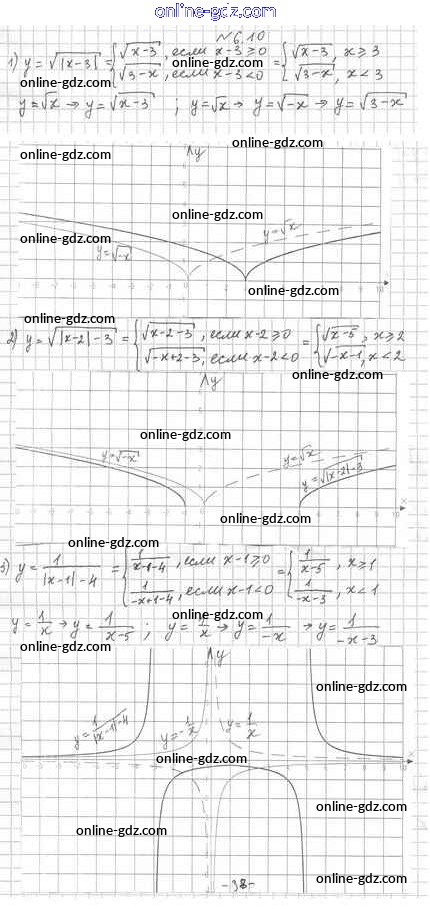 online-gdz.com
№6.10
1) y = √|x-3| = { √x-3, если x-3≥0 = { √x-3, x≥3
√3-x, если x-3<0 √3-x, x<3
online-gdz.com
online-gdz.com
y=√x → y=√x-3 ; y=√x → y=√-x → y=√3-x
online-gdz.com
online-gdz.com
y
online-gdz.com
y=√x
online-gdz.com
y=√-x
online-gdz.com
2) y = √|x-2|-3 = { √x-2-3, если x-2≥0 = { √x-5, x≥2
√-x+2-3, если x-2<0 √-x-1, x<2
online-gdz.com
y
online-gdz.com
y=√-x
y=√x
y=√|x-2|-3
x
online-gdz.com
online-gdz.com
3) y = 1/|x-1|-4 = { 1/x-1-4, если x-1≥0 = { 1/x-5, x≥1
1/-x+1-4, если x-1<0 1/-x-3, x<1
online-gdz.com
y=1/x → y=1/x-5 ; y=1/x → y=1/-x → y=1/-x-3
online-gdz.com
y
online-gdz.com
y=1/|x-1|-4
y=-1/x
y=1/x
online-gdz.com
x
online-gdz.com
online-gdz.com
online-gdz.com
-38-